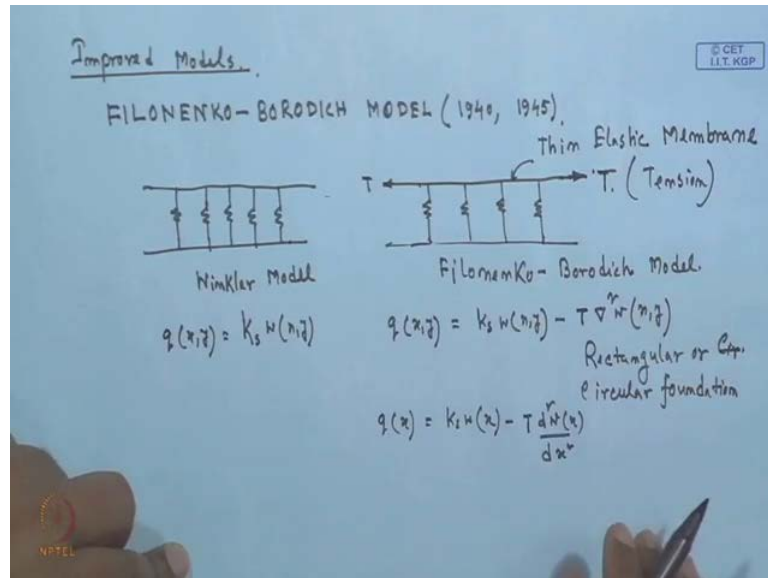 Improved Models.
© CET
I.I.T. KGP
FILONENKO-BORODICH MODEL (1940, 1945).
Thin Elastic Membrane
T
T. (Tension)
Winkler Model
Filonenko-Borodich Model.
q(x,y) = ks w(x,y)
q(x,y) = ks w(x,y) - T ∇² w(x,y)
Rectangular or
Circular foundation
q(x) = ks w(x) - T d²w(x)/dx²
NPTEL